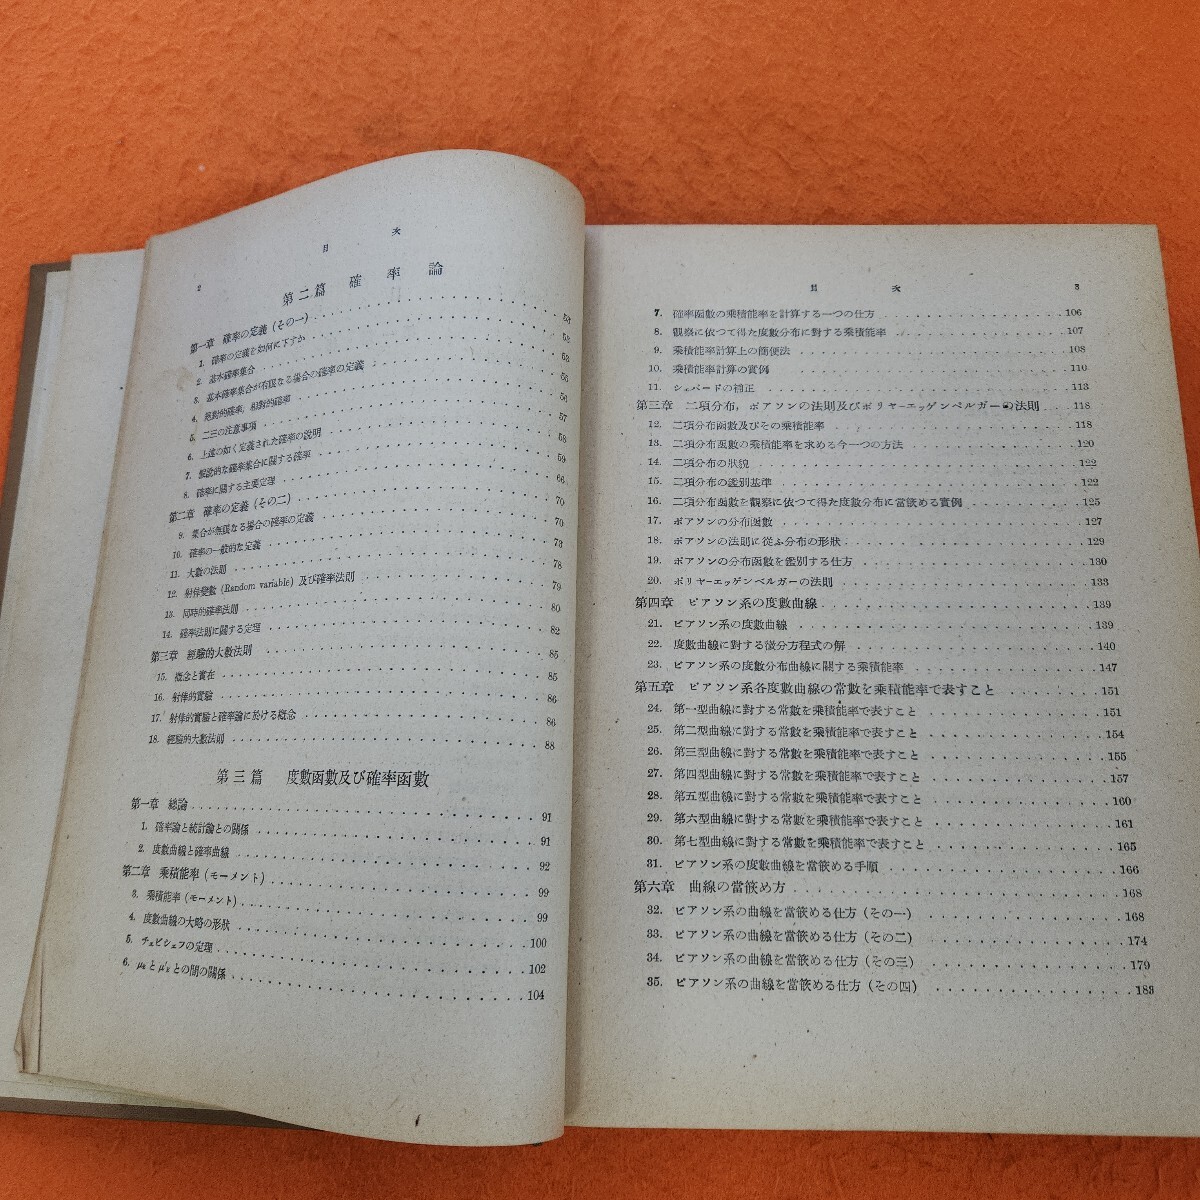 目次
2
第二篇 確率論
第一章 確率の定義(その一) 53
1. 確率の定義を如何に下すか 53
2. 基本確率集合 53
3. 基本確率集合が有限なる場合の確率の定義 55
4. 絶對的確率,相對的確率 56
5. 二三の注意事項 57
6. 上述の如く定義された確率の説明 58
7. 假説的な確率集合に關する確率 59
8. 確率に關する主要定理 66
第二章 確率の定義(その二) 70
9. 集合が無限なる場合の確率の定義 70
10. 確率の一般的な定義 73
11. 大數の法則 78
12. 射倖變數(Random variable)及び確率法則 79
13. 同時的確率法則 80
14. 確率法則に關する定理 82
第三章 經驗的大數法則 85
15. 概念と實在 85
16. 射倖的實驗 86
17. 射倖的實驗と確率論に於ける概念 86
18. 經驗的大數法則 88
第三篇 度數函數及び確率函數
第一章 總論 91
1. 確率論と統計論との關係 91
2. 度數曲線と確率曲線 92
第二章 乘積能率(モーメント) 99
3. 乘積能率(モーメント) 99
4. 度數曲線の大略の形狀 100
5. チェビシェフの定理 102
6. μとμ'との間の關係 104
目次
3
7. 確率函數の乘積能率を計算する一つの仕方 106
8. 觀察に依つて得た度數分布に對する乘積能率 107
9. 乘積能率計算上の簡便法 108
10. 乘積能率計算の實例 110
11. シェパードの補正 113
第三章 二項分布,ポアソンの法則及びポリヤーエッゲンベルガーの法則 118
12. 二項分布函數及びその乘積能率 118
13. 二項分布函數の乘積能率を求める今一つの方法 120
14. 二項分布の狀貌 122
15. 二項分布の鑑別基準 122
16. 二項分布函數を觀察に依つて得た度數分布に當嵌める實例 125
17. ポアソンの分布函數 127
18. ポアソンの法則に從ふ分布の形狀 129
19. ポアソンの分布函數を鑑別する仕方 130
20. ポリヤーエッゲンベルガーの法則 133
第四章 ピアソン系の度數曲線 139
21. ピアソン系の度數曲線 139
22. 度數曲線に對する微分方程式の解 140
23. ピアソン系の度數分布曲線に關する乘積能率 147
第五章 ピアソン系各度數曲線の常數を乘積能率で表すこと 151
24. 第一型曲線に對する常數を乘積能率で表すこと 151
25. 第二型曲線に對する常數を乘積能率で表すこと 154
26. 第三型曲線に對する常數を乘積能率で表すこと 155
27. 第四型曲線に對する常數を乘積能率で表すこと 157
28. 第五型曲線に對する常數を乘積能率で表すこと 160
29. 第六型曲線に對する常數を乘積能率で表すこと 161
30. 第七型曲線に對する常數を乘積能率で表すこと 165
31. ピアソン系の度數曲線を當嵌める手順 166
第六章 曲線の當嵌め方 168
32. ピアソン系の曲線を當嵌める仕方(その一) 168
33. ピアソン系の曲線を當嵌める仕方(その二) 174
34. ピアソン系の曲線を當嵌める仕方(その三) 179
35. ピアソン系の曲線を當嵌める仕方(その四) 183